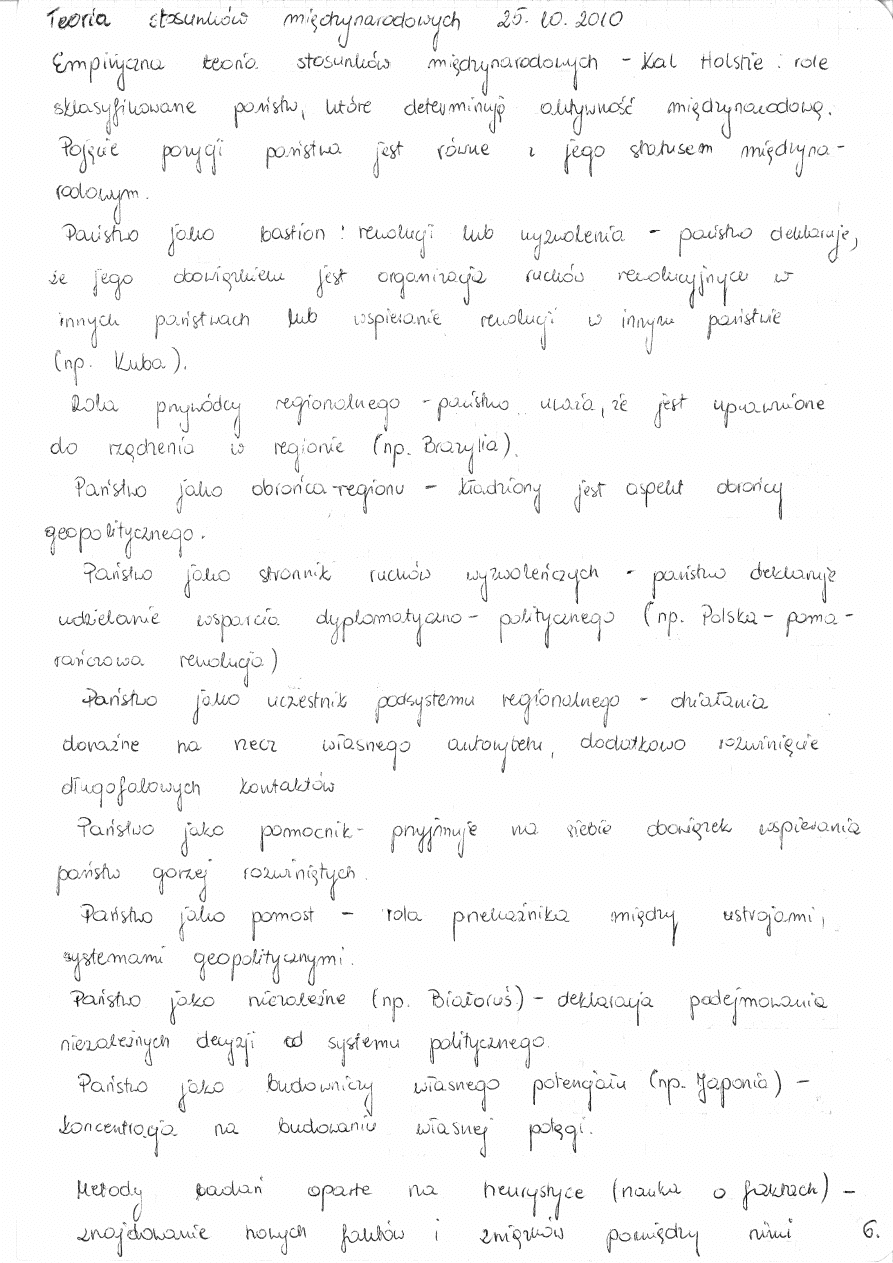 Teoria stosunków międzynarodowych 25.10.2010
Empiryczna teoria stosunków międzynarodowych - Kal Holstie : role
sklasyfikowane państw, które determinują aktywność międzynarodową.
Pojęcie pozycji państwa jest równe z jego statusem międzyna-
rodowym.
Państwo jako bastion : rewolucji lub wyzwolenia - państwo deklaruje,
że jego obowiązkiem jest organizacja ruchów rewolucyjnych w
innych państwach lub wspieranie rewolucji w innym państwie
(np. Kuba).
Rola przywódcy regionalnego - państwo uważa, że jest uprawnione
do rządzenia w regionie (np. Brazylia).
Państwo jako obrońca regionu - kładziony jest aspekt obrońcy
geopolitycznego.
Państwo jako stronnik ruchów wyzwoleńczych - państwo deklaruje
udzielanie wsparcia dyplomatyczno - politycznego (np. Polska - poma-
rańczowa rewolucja)
Państwo jako uczestnik podsystemu regionalnego - działania
doraźne na rzecz własnego autorytetu, dodatkowo rozwinięcie
długofalowych kontaktów
Państwo jako pomocnik - przyjmuje na siebie obowiązek wspierania
państw gorzej rozwiniętych.
Państwo jako pomost - rola przekaźnika między ustrojami,
systemami geopolitycznymi.
Państwo jako niezależne (np. Białoruś) - deklaracja podejmowania
niezależnych decyzji od systemu politycznego.
Państwo jako budowniczy własnego potencjału (np. Japonia) -
koncentracja na budowaniu własnej potęgi.
Metody badań oparte na heurystyce (nauka o faktach) -
znajdowanie nowych faktów i związków pomiędzy nimi 6.